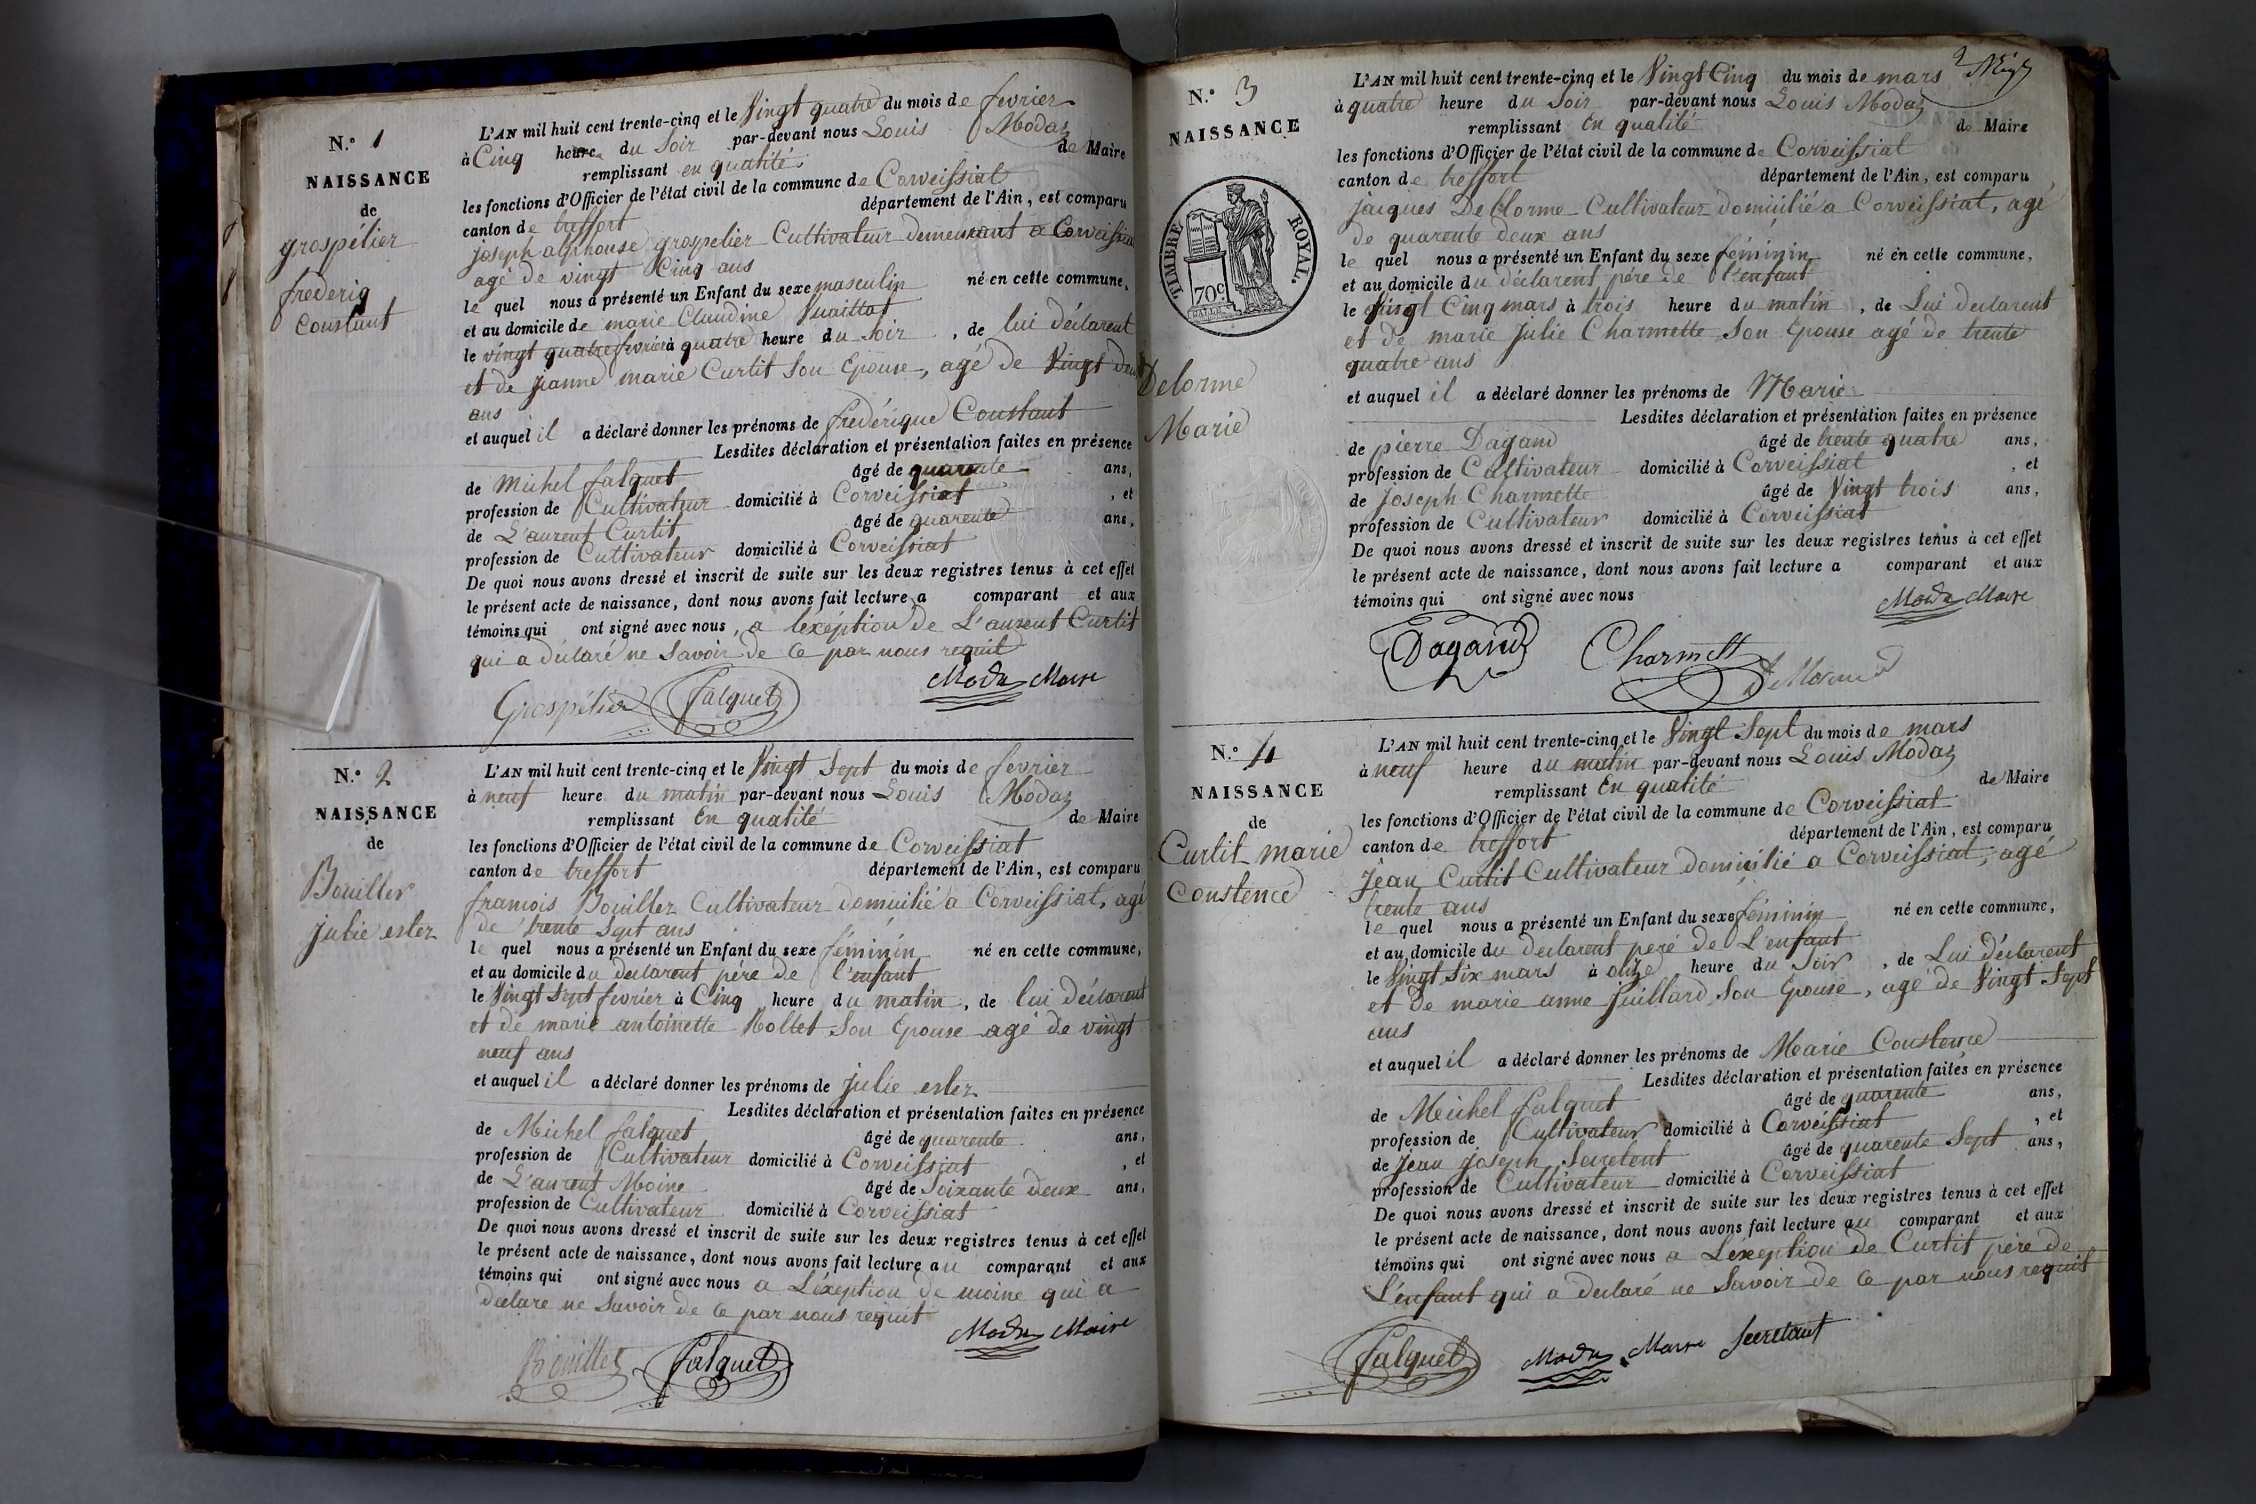 N.º 1
NAISSANCE
de
grospélier
frederiq
Constant
L'AN mil huit cent trente-cinq et le Vingt quatre du mois de fevrier
à Cinq heure du Soir par-devant nous Louis Modaz
remplissant en qualité de Maire
les fonctions d'Officier de l'état civil de la commune de Corveissiat
canton de treffort département de l'Ain, est comparu
joseph alphonse grospelier Cultivateur demeurant a Corveissiat
agé de vingt Cinq ans
le quel nous a présenté un Enfant du sexe masculin né en cette commune,
et au domicile de marie Claudine Vuaillat
le vingt quatre fevrier à quatre heure du Soir, de lui déclarent
et de jeanne marie Curtit Son Epouse, agé de Vingt deux
ans
et auquel il a déclaré donner les prénoms de frederique Constant
Lesdites déclaration et présentation faites en présence
de Michel falquet âgé de quarente ans,
profession de Cultivateur domicilié à Corveissiat, et
de L'aurent Curtit âgé de quarente ans,
profession de Cultivateur domicilié à Corveissiat
De quoi nous avons dressé et inscrit de suite sur les deux registres tenus à cet effet
le présent acte de naissance, dont nous avons fait lecture a comparant et aux
témoins qui ont signé avec nous, a l'exéption de L'aurent Curtit
qui a declaré ne Savoir de Ce par nous requit
Grospélier falquet Modaz Maire
N.º 2
NAISSANCE
de
Bouiller
julie ester
L'AN mil huit cent trente-cinq et le Vingt Sept du mois de fevrier
à neuf heure du matin par-devant nous Louis Modaz
remplissant En qualité de Maire
les fonctions d'Officier de l'état civil de la commune de Corveissiat
canton de treffort département de l'Ain, est comparu
francois Bouiller Cultivateur domicilié a Corveissiat, agé
de trente Sept ans
le quel nous a présenté un Enfant du sexe féminin né en cette commune,
et au domicile du declarent pére de l'enfant
le Vingt Sept fevrier à Cinq heure du matin, de lui déclarent
et de marie antoinette Rollet Son Epouse agé de vingt
neuf ans
et auquel il a déclaré donner les prénoms de julie ester
Lesdites déclaration et présentation faites en présence
de Michel falquet âgé de quarente ans,
profession de Cultivateur domicilié à Corveissiat, et
de L'aurent Moine âgé de Soixante deux ans,
profession de Cultivateur domicilié à Corveissiat
De quoi nous avons dressé et inscrit de suite sur les deux registres tenus à cet effet
le présent acte de naissance, dont nous avons fait lecture au comparant et aux
témoins qui ont signé avec nous a L'éxeption de moine qui a
declare ne Savoir de Ce par nous requit
Bouiller falquet Modaz Maire
N.º 3
NAISSANCE
TIMBRE ROYAL.
70c.
Delorme
Marie
L'AN mil huit cent trente-cinq et le Vingt Cinq du mois de mars
à quatre heure du Soir par-devant nous Louis Modaz
remplissant En qualité de Maire
les fonctions d'Officier de l'état civil de la commune de Corveissiat
canton de treffort département de l'Ain, est comparu
jacques DeLlorme Cultivateur domicilié a Corveissiat, agé
de quarente deux ans
le quel nous a présenté un Enfant du sexe féminin né en cette commune,
et au domicile du déclarent pére de l'enfant
le Vingt Cinq mars à trois heure du matin, de Lui declarent
et de marie julie Charmette Son Epouse agé de trente
quatre ans
et auquel il a déclaré donner les prénoms de Marie
Lesdites déclaration et présentation faites en présence
de pierre Dagand âgé de trente quatre ans,
profession de Cultivateur domicilié à Corveissiat, et
de Joseph Charmette âgé de Vingt trois ans,
profession de Cultivateur domicilié à Corveissiat
De quoi nous avons dressé et inscrit de suite sur les deux registres tenus à cet effet
le présent acte de naissance, dont nous avons fait lecture a comparant et aux
témoins qui ont signé avec nous Modaz Maire
Dagand Charmett
N.º 4
NAISSANCE
de
Curtit marie
Constence
L'AN mil huit cent trente-cinq et le Vingt Sept du mois de mars
à neuf heure du matin par-devant nous Louis Modaz
remplissant En qualité de Maire
les fonctions d'Officier de l'état civil de la commune de Corveissiat
canton de treffort département de l'Ain, est comparu
Jean Curtit Cultivateur domicilié a Corveissiat, agé
trente ans
le quel nous a présenté un Enfant du sexe féminin né en cette commune,
et au domicile du declarent peré de L'enfant
le Vingt Six mars à onze heure du Soir, de Lui déclarent
et de marie anne juillard Son Epouse, agé de Vingt Sept
ans
et auquel il a déclaré donner les prénoms de Marie Constence
Lesdites déclaration et présentation faites en présence
de Michel falquet âgé de quarente ans,
profession de Cultivateur domicilié à Corveissiat, et
de Jean joseph Secretent âgé de quarente Sept ans,
profession de Cultivateur domicilié à Corveissiat
De quoi nous avons dressé et inscrit de suite sur les deux registres tenus à cet effet
le présent acte de naissance, dont nous avons fait lecture au comparant et aux
témoins qui ont signé avec nous a L'éxeption de Curtit père de
L'enfant qui a declaré ne Savoir de Ce par nous requit
falquet Modaz Maire Secretant